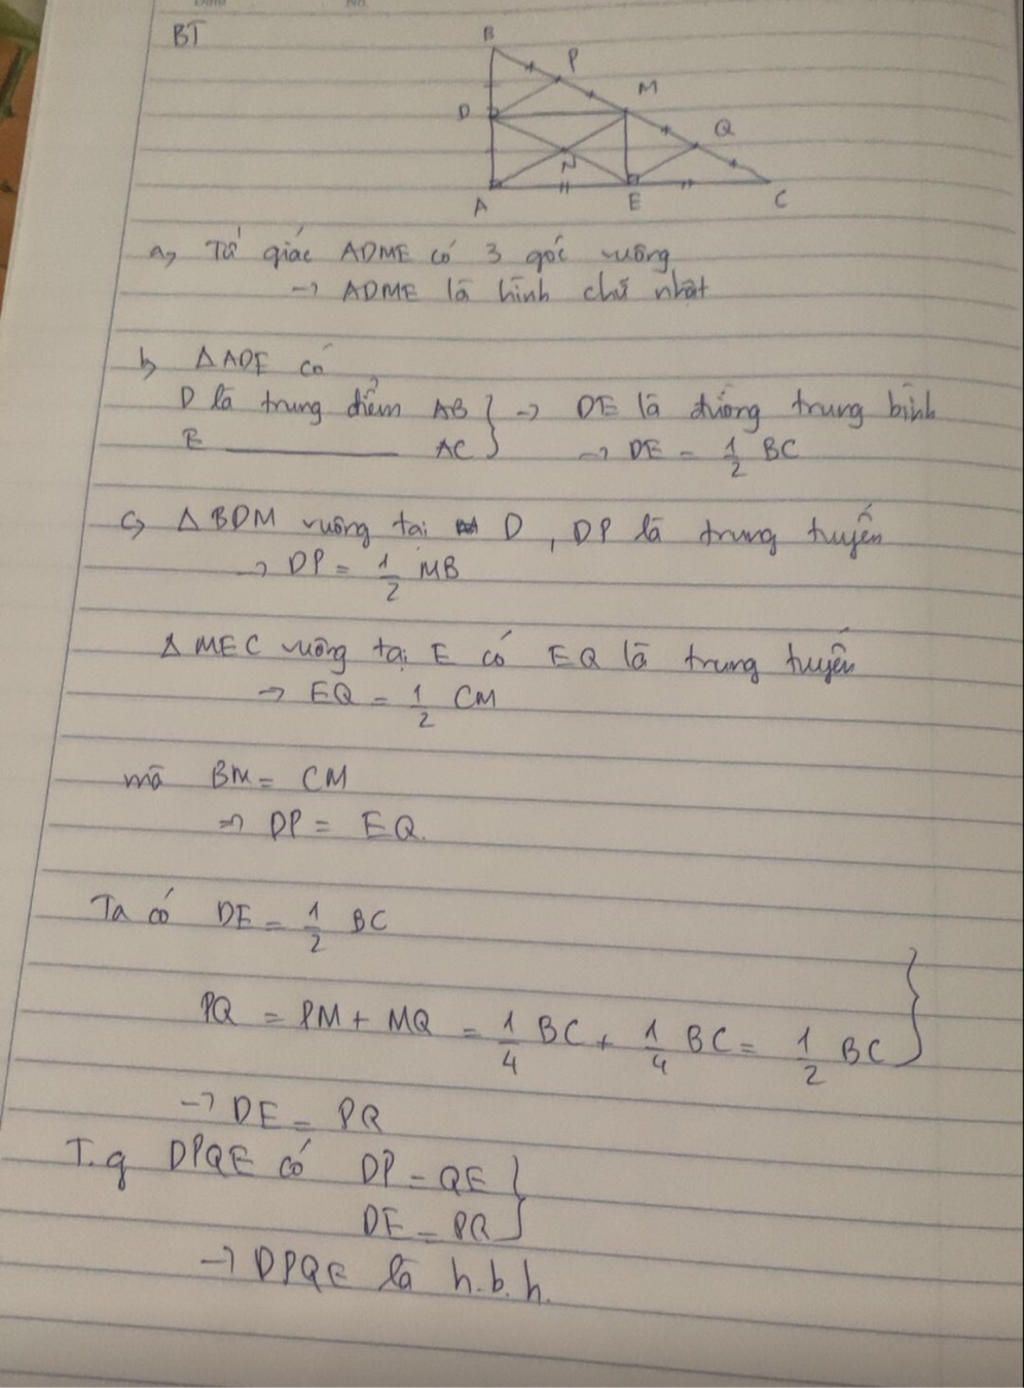 BT
B
P
M
D
Q
N
A
E
C
a, Tứ giác ADME có 3 góc vuông
→ ADME là hình chữ nhật
b, △ADE có
D là trung điểm AB } → DE là đường trung bình
E ——— AC → DE = 1/2 BC
c, △BDM vuông tại D, DP là trung tuyến
→ DP = 1/2 MB
△MEC vuông tại E có EQ là trung tuyến
→ EQ = 1/2 CM
mà BM = CM
→ DP = EQ.
Ta có DE = 1/2 BC
PQ = PM + MQ = 1/4 BC + 1/4 BC = 1/2 BC }
→ DE = PQ
T.g DPQE có DP = QE }
DE = PQ
→ DPQE là h.b.h.